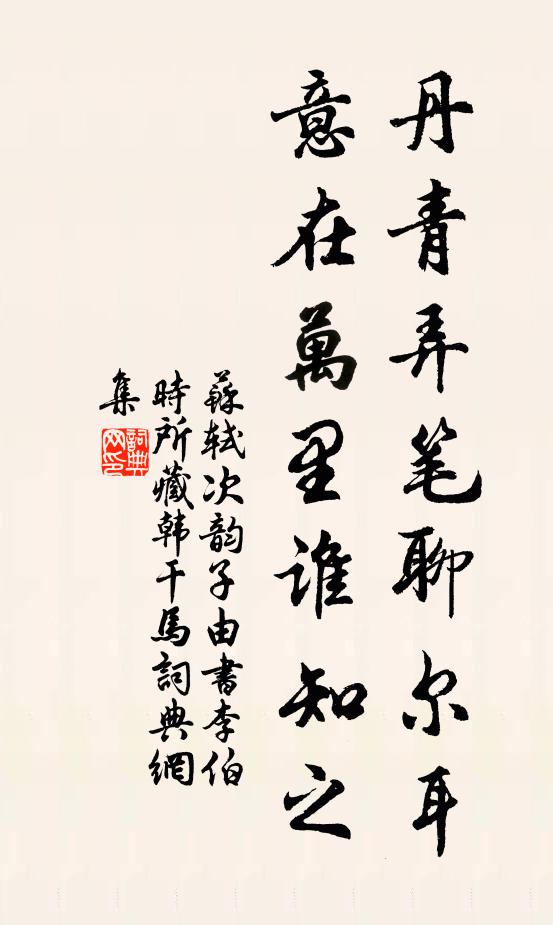 丹青弄笔聊尔耳
意在萬里谁知之
蘇軾次韵子由書李伯
時所藏韩干馬詞典網
集
詞典
网印